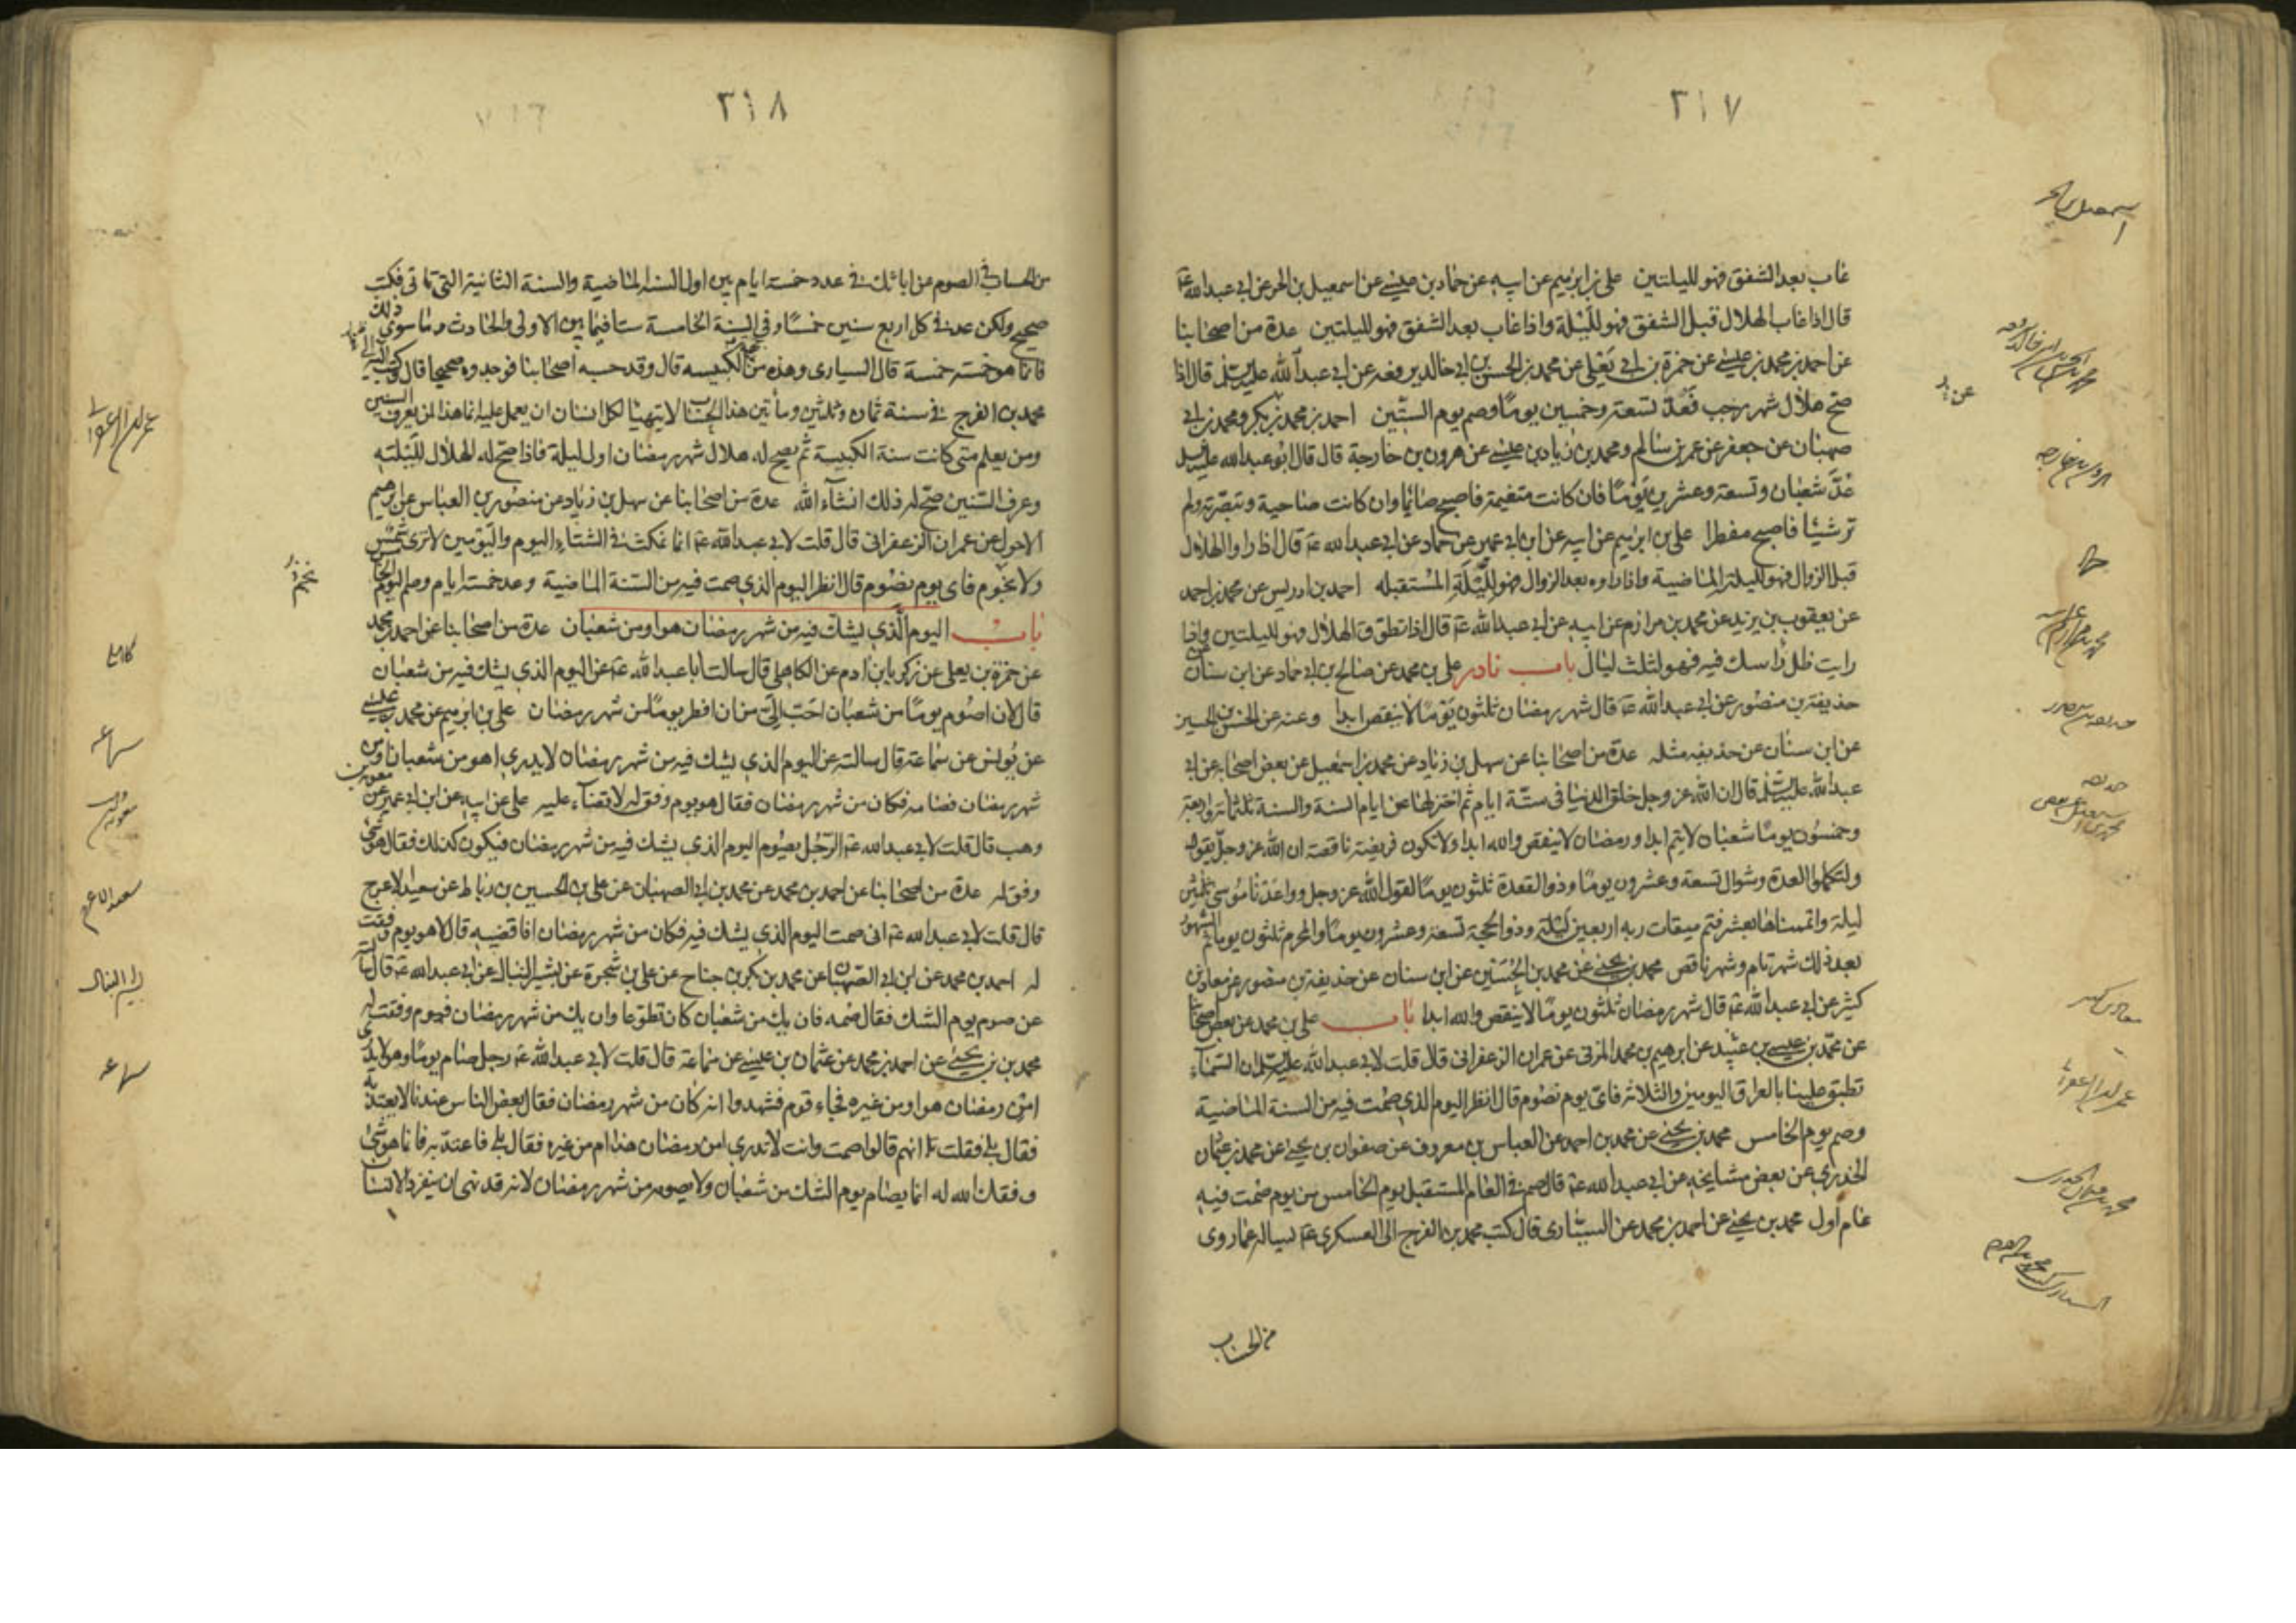 ٣١٧
غاب بعد الشفق فهو لليلتين علي بن ابرهيم عن ابيه عن حماد بن عيسى عن اسمعيل بن الحر عن ابي عبد الله ع
قال اذا غاب الهلال قبل الشفق فهو لليلة واذا غاب بعد الشفق فهو لليلتين عدة من اصحابنا
عن احمد بن محمد بن عيسى عن حمزة بن ابي يعلى عن محمد بن الحسن بن ابي خالد يرفعه عن ابي عبد الله عليه السلم قال اذا
صح هلال شهر رجب فعد تسعة وخمسين يوما وصم يوم الستين احمد بن محمد بن بكر ومحمد بن ابي
صهبان عن جعفر عن عمر بن سالم ومحمد بن زياد بن عيسى عن هرون بن خارجة قال قال ابو عبد الله عليه السلم
عد شعبان وتسعة وعشرين يوما فان كانت متغيمة فاصبح صائما وان كانت صاحية وتبصرته ولم
تر شيئا فاصبح مفطرا علي بن ابرهيم عن ابيه عن ابن ابي عمير عن حماد عن ابي عبد الله ع قال اذا راوا الهلال
قبل الزوال فهو لليلة الماضية واذا راوه بعد الزوال فهو لليلة المستقبله احمد بن ادريس عن محمد بن احمد
عن يعقوب بن يزيد عن محمد بن مرازم عن ابيه عن ابي عبد الله ع قال اذا تطوق الهلال فهو لليلتين واذا
رايت ظل راسك فيه فهو لثلث ليال باب نادر علي بن محمد عن صالح بن ابي حماد عن ابن سنان عن
حذيفة بن منصور عن ابي عبد الله ع قال شهر رمضان ثلثون يوما لا ينقص ابدا وعنه عن الحسن بن الحسين
عن ابن سنان عن حذيفه مثله عدة من اصحابنا عن سهل بن زياد عن محمد بن اسمعيل عن بعض اصحابه عن ابي
عبد الله عليه السلم قال ان الله عز وجل خلق الدنيا في ستة ايام ثم اختزلها عن ايام السنة والسنة ثلثمائة واربعة
وخمسون يوما شعبان لا يتم ابدا ورمضان لا ينقص والله ابدا ولا تكون فريضة ناقصة ان الله عز وجل يقول
ولتكملوا العدة وشوال تسعة وعشرون يوما وذو القعدة ثلثون يوما لقول الله عز وجل وواعدنا موسى ثلثين
ليلة واتممناها بعشر فتم ميقات ربه اربعين ليلة وذو الحجة تسعة وعشرون يوما والمحرم ثلثون يوما ثم الشهور
بعد ذلك شهر تام وشهر ناقص محمد بن يحيى عن محمد بن الحسين عن ابن سنان عن حذيفة بن منصور عن معاذ بن
كثير عن ابي عبد الله ع قال شهر رمضان ثلثون يوما لا ينقص والله ابدا باب علي بن محمد عن بعض اصحابنا
عن محمد بن عيسى بن عبيد عن ابرهيم بن محمد المزني عن عمران الزعفراني قال قلت لابي عبد الله عليه السلم ان السماء
تطبق علينا بالعراق اليومين والثلاثة فاي يوم نصوم قال انظر اليوم الذي صمت فيه من السنة الماضية
وصم يوم الخامس محمد بن يحيى عن محمد بن احمد عن العباس بن معروف عن صفوان بن يحيى عن محمد بن عثمان
الخدري عن بعض مشايخه عن ابي عبد الله ع قال صم في العام المستقبل يوم الخامس من يوم صمت فيه
عام اول محمد بن يحيى عن احمد بن محمد عن السياري قال كتب محمد بن الفرج الى العسكري ع يساله عما روى
من الحساب
٣١٨
من الحساب في الصوم عن ابائك في عدد خمسة ايام بين اول السنة الماضية والسنة الثانية التي تاتي فكتب
صحيح ولكن عد في كل اربع سنين خمسا وفي السنة الخامسة ستا فيما بين الاولى والحادث وما سوى ذلك
فانما هو خمسة خمسة قال السياري وهذه من جهة الكبيسه قال وقد حسبه اصحابنا فوجدوه صحيحا قال وكتب اليه
محمد بن الفرج في سنة ثمان وثلثين ومأتين هذا الحساب لا يتهيا لكل انسان ان يعمل عليه انما هذا لمن يعرف السنين
ومن يعلم متى كانت سنة الكبيسة ثم يصح له هلال شهر رمضان اول ليلة فاذا صح له الهلال لليلته
وعرف السنين صح له ذلك انشاء الله عدة من اصحابنا عن سهل بن زياد عن منصور بن العباس عن ابرهيم
الاحول عن عمران الزعفراني قال قلت لابي عبد الله ع انا نمكث في الشتاء اليوم واليومين لا ترى شمس
ولا نجوم فاي يوم نصوم قال انظر اليوم الذي صمت فيه من السنة الماضية وعد خمسة ايام وصم اليوم الخامس
باب اليوم الذي يشك فيه من شهر رمضان هو او من شعبان عدة من اصحابنا عن احمد بن محمد
عن حمزة بن يعلى عن زكريا بن ادم عن الكاهلي قال سالت ابا عبد الله ع عن اليوم الذي يشك فيه من شعبان
قال لان اصوم يوما من شعبان احب الي من ان افطر يوما من شهر رمضان علي بن ابرهيم عن محمد بن عيسى
عن يونس عن سماعة قال سالته عن اليوم الذي يشك فيه من شهر رمضان لا يدري اهو من شعبان او من
شهر رمضان فصامه فكان من شهر رمضان فقال هو يوم وفق له لا قضاء عليه علي عن ابيه عن ابن ابي عمير عن معوية بن
وهب قال قلت لابي عبد الله ع الرجل يصوم اليوم الذي يشك فيه من شهر رمضان فيكون كذلك فقال هو شئ
وفق له عدة من اصحابنا عن احمد بن محمد عن محمد بن ابي الصهبان عن علي بن الحسين بن رباط عن سعيد الاعرج
قال قلت لابي عبد الله ع اني صمت اليوم الذي يشك فيه فكان من شهر رمضان افاقضيه قال لا هو يوم وفقت
له احمد بن محمد عن ابن ابي الصهبان عن محمد بن بكر بن جناح عن علي بن شجرة عن بشير النبال عن ابي عبد الله ع قال سالته
عن صوم يوم الشك فقال صمه فان يك من شعبان كان تطوعا وان يك من شهر رمضان فيوم وفقت له
محمد بن يحيى عن احمد بن محمد عن عثمان بن عيسى عن سماعة قال قلت لابي عبد الله ع رجل صام يوما وهو لا يدري
امن رمضان هو او من غيره فجاء قوم فشهدوا انه كان من شهر رمضان فقال بعض الناس عندنا لا يعتد به
فقال بلى فقلت انهم قالوا صمت وانت لا تدري امن رمضان هذا ام من غيره فقال بلى فاعتد به فانما هو شئ
وفقك الله له انما يصام يوم الشك من شعبان ولا يصومه من شهر رمضان لانه قد نهى ان ينفرد الانسان